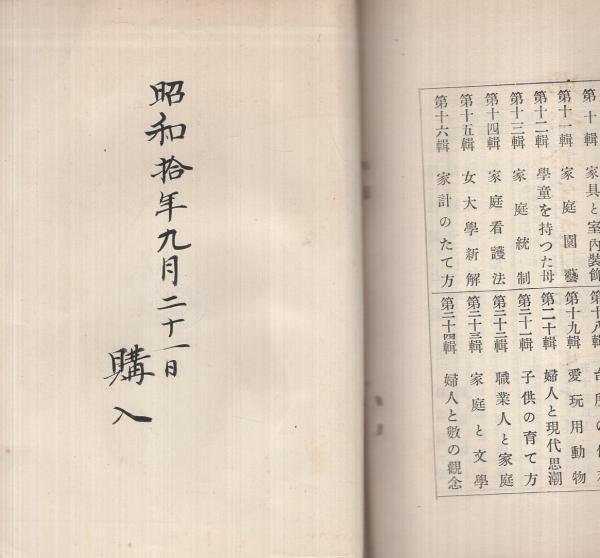 第十輯　家具と室內裝飾
第十一輯　家庭園藝
第十二輯　學童を持つた母
第十三輯　家庭統制
第十四輯　家庭看護法
第十五輯　女大學新解
第十六輯　家計のたて方
第十八輯　台所の
第十九輯　愛玩用動物
第二十輯　婦人と現代思潮
第二十一輯　子供の育て方
第二十二輯　職業人と家庭
第二十三輯　家庭と文學
第二十四輯　婦人と數の觀念
昭和拾年九月二十一日
購入